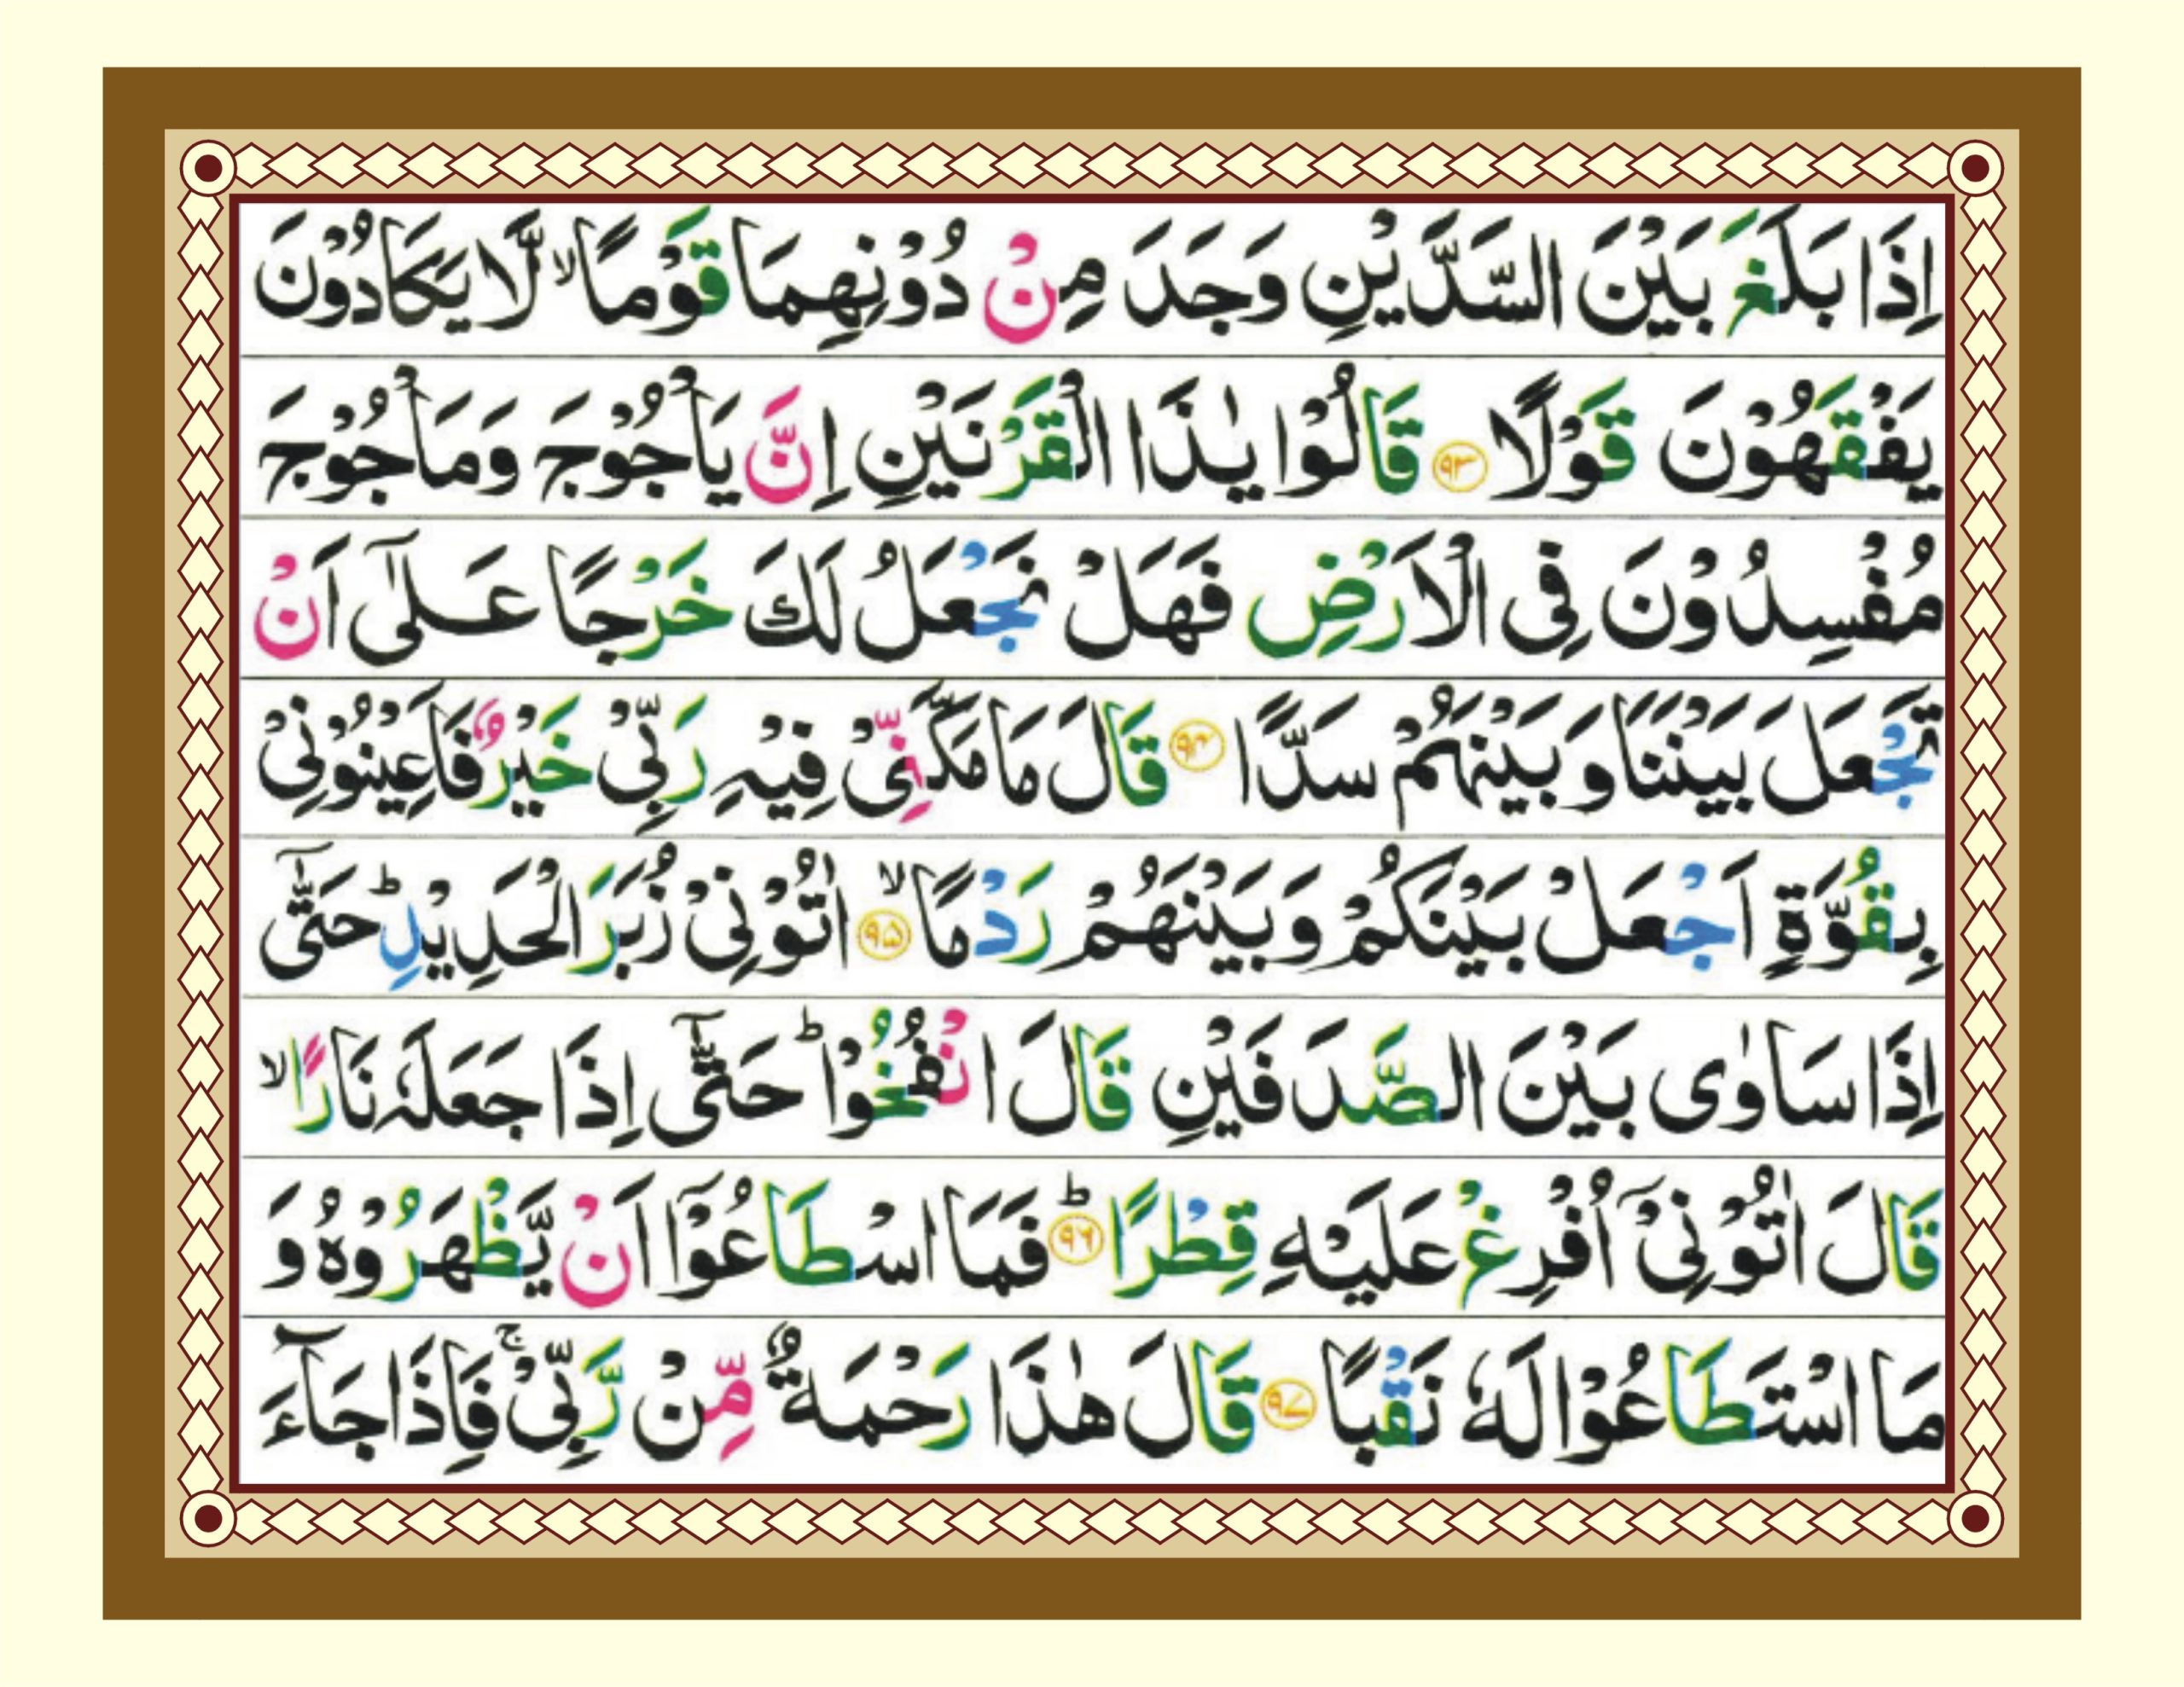 اِذَا بَلَغَ بَيْنَ السَّدَّيْنِ وَجَدَ مِنْ دُوْنِهِمَا قَوْمًا ۙ لَّا يَكَادُوْنَ
يَفْقَهُوْنَ قَوْلًا ﴿۹۳﴾ قَالُوْا يٰذَا الْقَرْنَيْنِ اِنَّ يَاْجُوْجَ وَمَاْجُوْجَ
مُفْسِدُوْنَ فِى الْاَرْضِ فَهَلْ نَجْعَلُ لَكَ خَرْجًا عَلٰٓى اَنْ
تَجْعَلَ بَيْنَنَا وَبَيْنَهُمْ سَدًّا ﴿۹۴﴾ قَالَ مَا مَكَّنِّىْ فِيْهِ رَبِّىْ خَيْرٌ فَاَعِيْنُوْنِىْ
بِقُوَّةٍ اَجْعَلْ بَيْنَكُمْ وَبَيْنَهُمْ رَدْمًا ۙ ﴿۹۵﴾ اٰتُوْنِىْ زُبَرَ الْحَدِيْدِ ؕ حَتّٰٓى
اِذَا سَاوٰى بَيْنَ الصَّدَفَيْنِ قَالَ انْفُخُوْا ؕ حَتّٰٓى اِذَا جَعَلَهٗ نَارًا ۙ
قَالَ اٰتُوْنِىْۤ اُفْرِغْ عَلَيْهِ قِطْرًا ؕ ﴿۹۶﴾ فَمَا اسْطَاعُوْۤا اَنْ يَّظْهَرُوْهُ وَ
مَا اسْتَطَاعُوْا لَهٗ نَقْبًا ﴿۹۷﴾ قَالَ هٰذَا رَحْمَةٌ مِّنْ رَّبِّىْ ۚ فَاِذَا جَآءَ